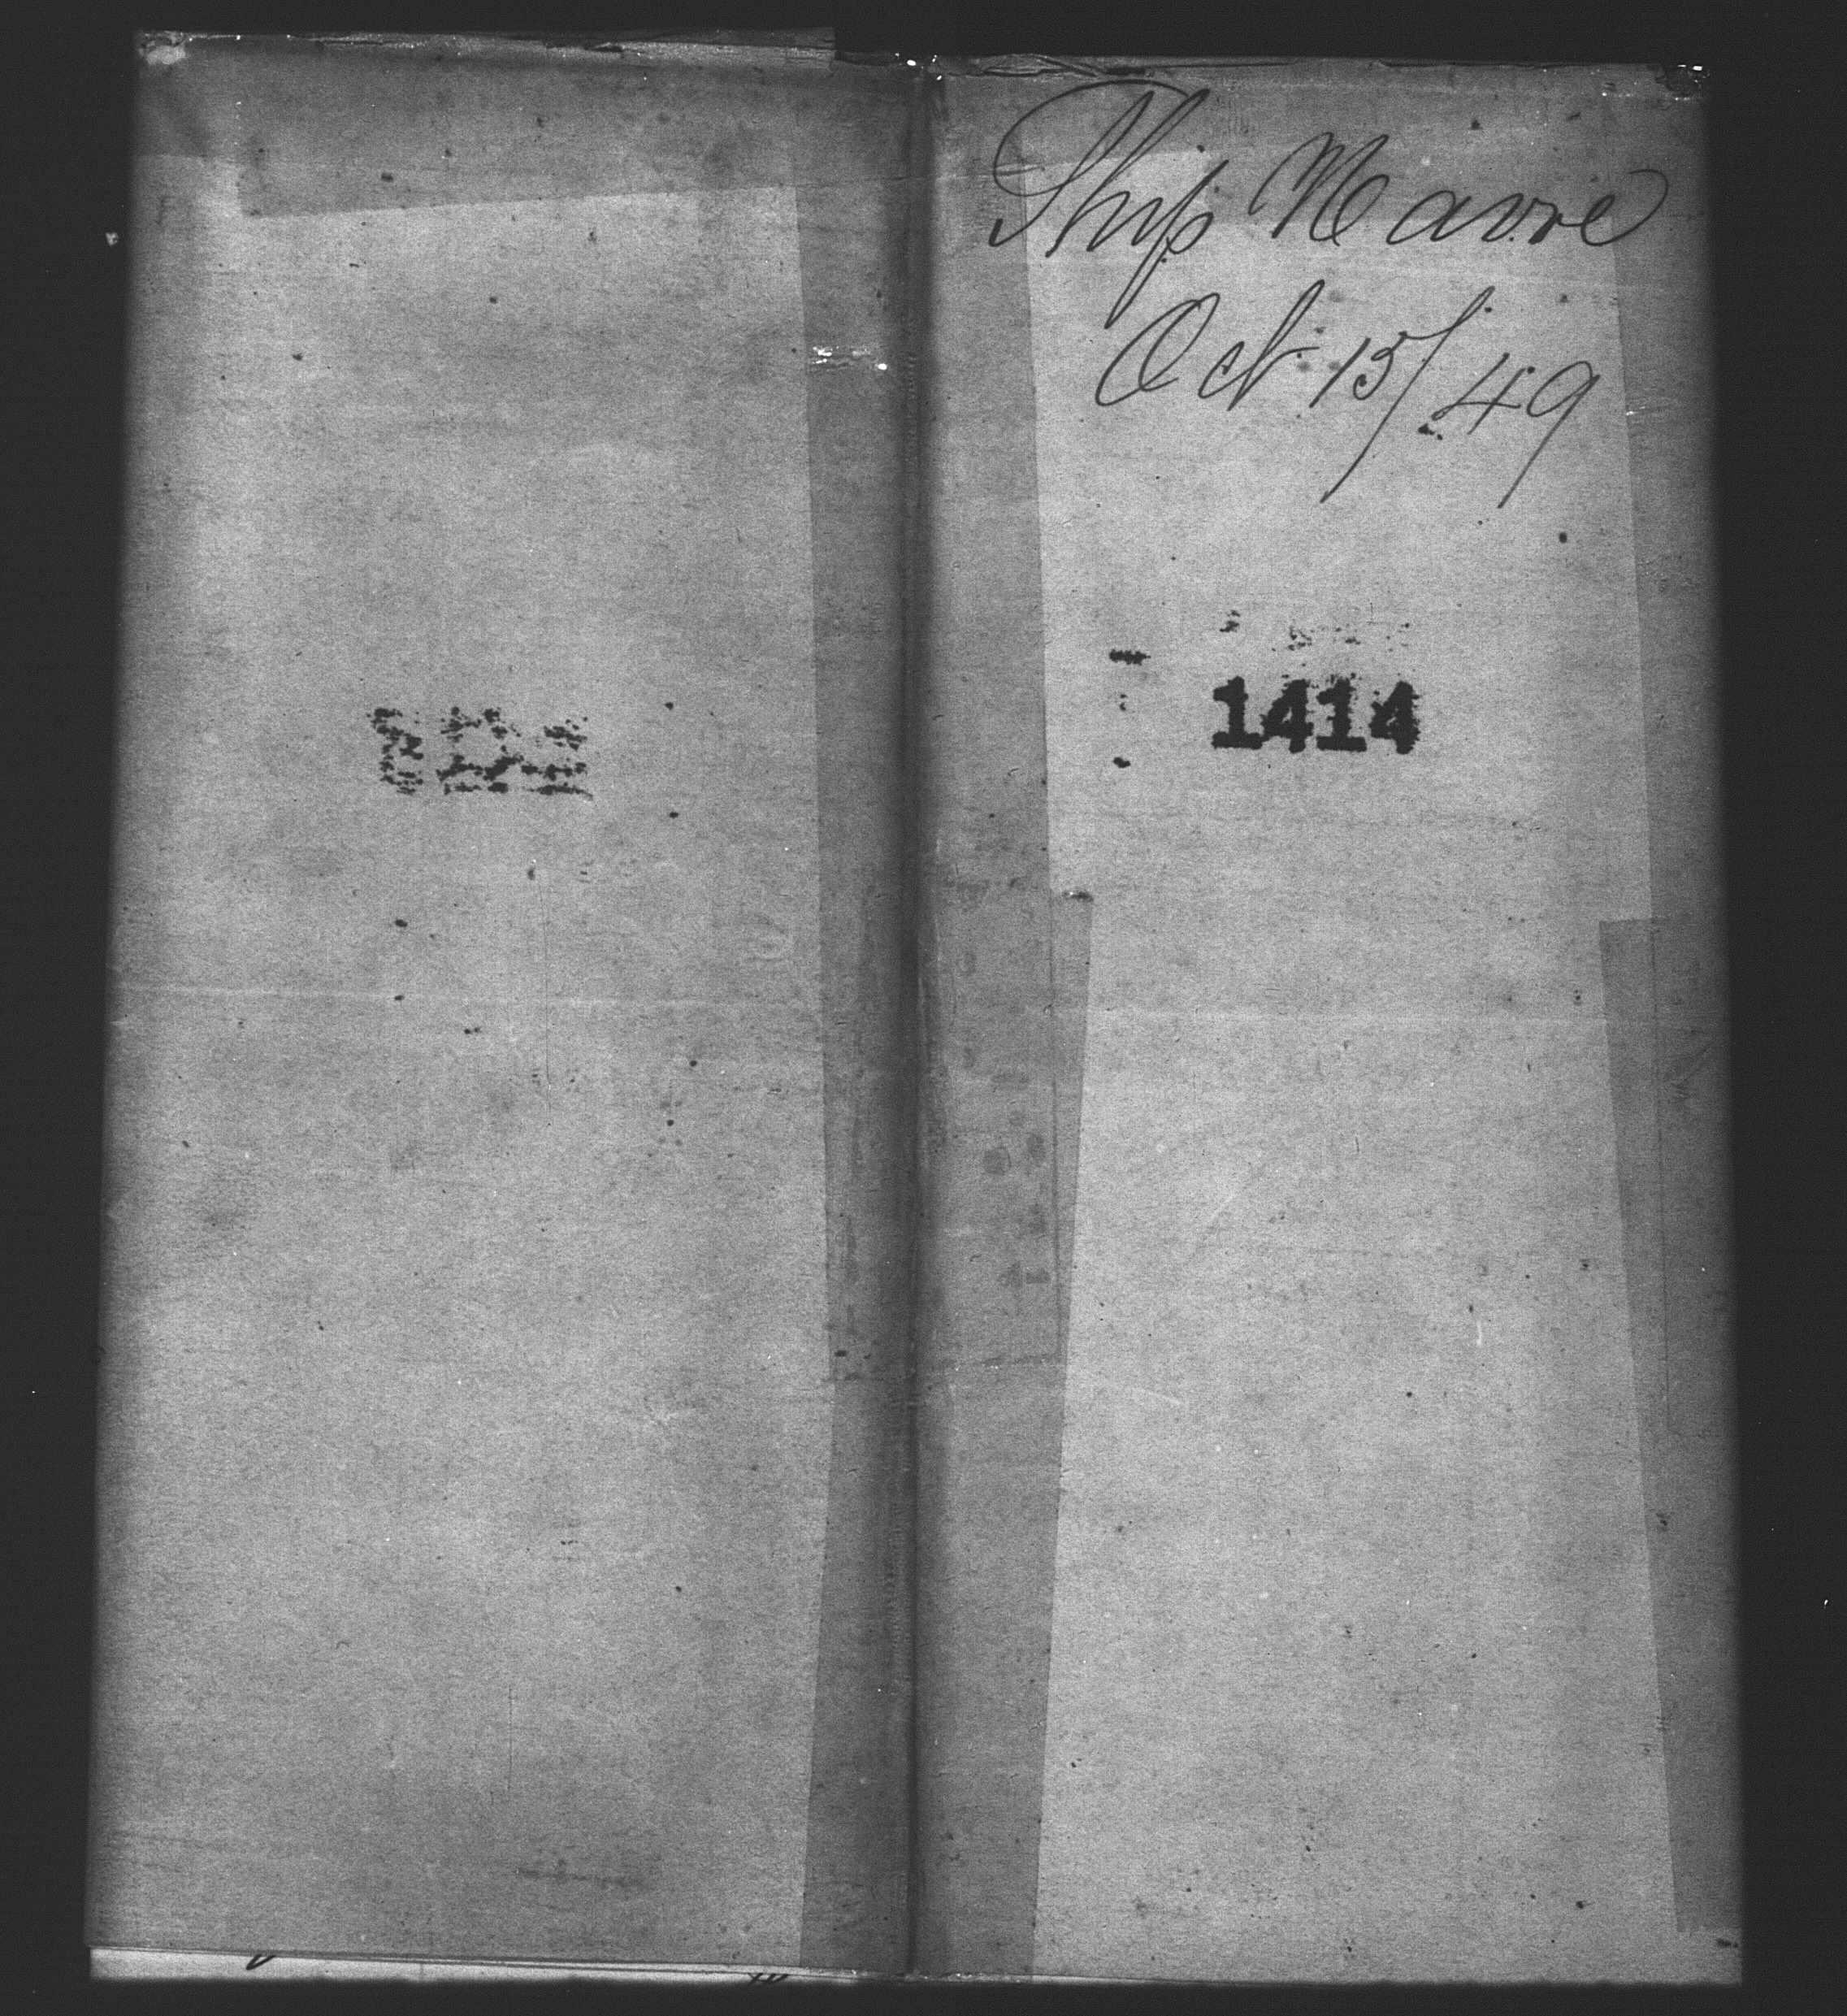 Ship Havre
Oct 15/49
1414